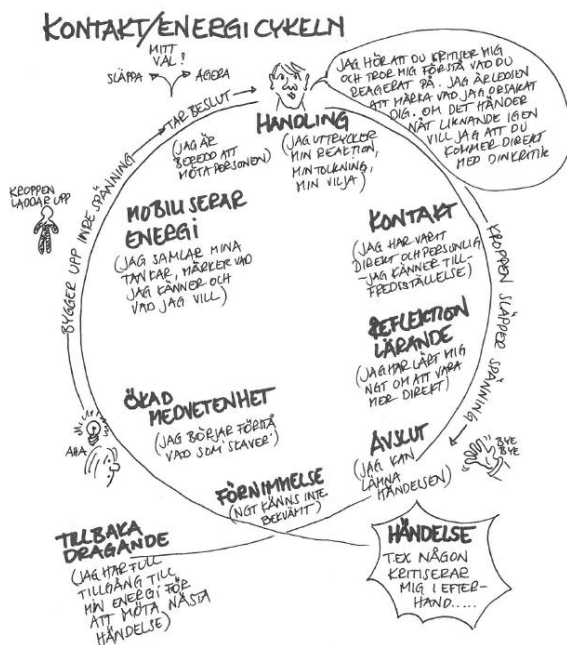 KONTAKT/ENERGICYKELN
MITT
VAL!
SLÄPPA
AGERA
TAR BESLUT
JAG HÖR ATT DU KRITISER MIG
OCH TROR MIG FÖRSTÅ VAD DU
REAGERAT PÅ. JAG ÄR LEDSEN
ATT MÄRKA VAD JAG ORSAKAT
DIG. OM DET HÄNDER
NÅT LIKNANDE IGEN
VILL JAG ATT DU
KOMMER DIREKT
MED DIN KRITIK
HANDLING
(JAG UTTRYCKER
MIN REAKTION,
MIN TOLKNING,
MIN VILJA)
(JAG ÄR
BEREDD ATT
MÖTA PERSONEN)
KROPPEN
LADDAR UPP
BYGGER UPP INRE SPÄNNING
MOBILISERAR
ENERGI
(JAG SAMLAR MINA
TANKAR, MÄRKER VAD
JAG KÄNNER OCH
VAD JAG VILL)
KONTAKT
(JAG HAR VARIT
DIREKT OCH PERSONLIG
- JAG KÄNNER TILL-
FREDSSTÄLLELSE)
KROPPEN SLÄPPER SPÄNNING
REFLEKTION
LÄRANDE
(JAG HAR LÄRT MIG
NGT OM ATT VARA
MER DIREKT)
ÖKAD
MEDVETENHET
(JAG BÖRJAR FÖRSTÅ
VAD SOM "SKAVER")
AHA
AVSLUT
(JAG KAN
LÄMNA
HÄNDELSEN)
BYE
BYE
FÖRNIMMELSE
(NGT KÄNNS INTE
BEKVÄMT)
TILLBAKA
DRAGANDE
(JAG HAR FULL
TILLGÅNG TILL
MIN ENERGI FÖR
ATT MÖTA NÄSTA
HÄNDELSE)
HÄNDELSE
T.EX NÅGON
KRITISERAR
MIG I EFTER-
HAND.....